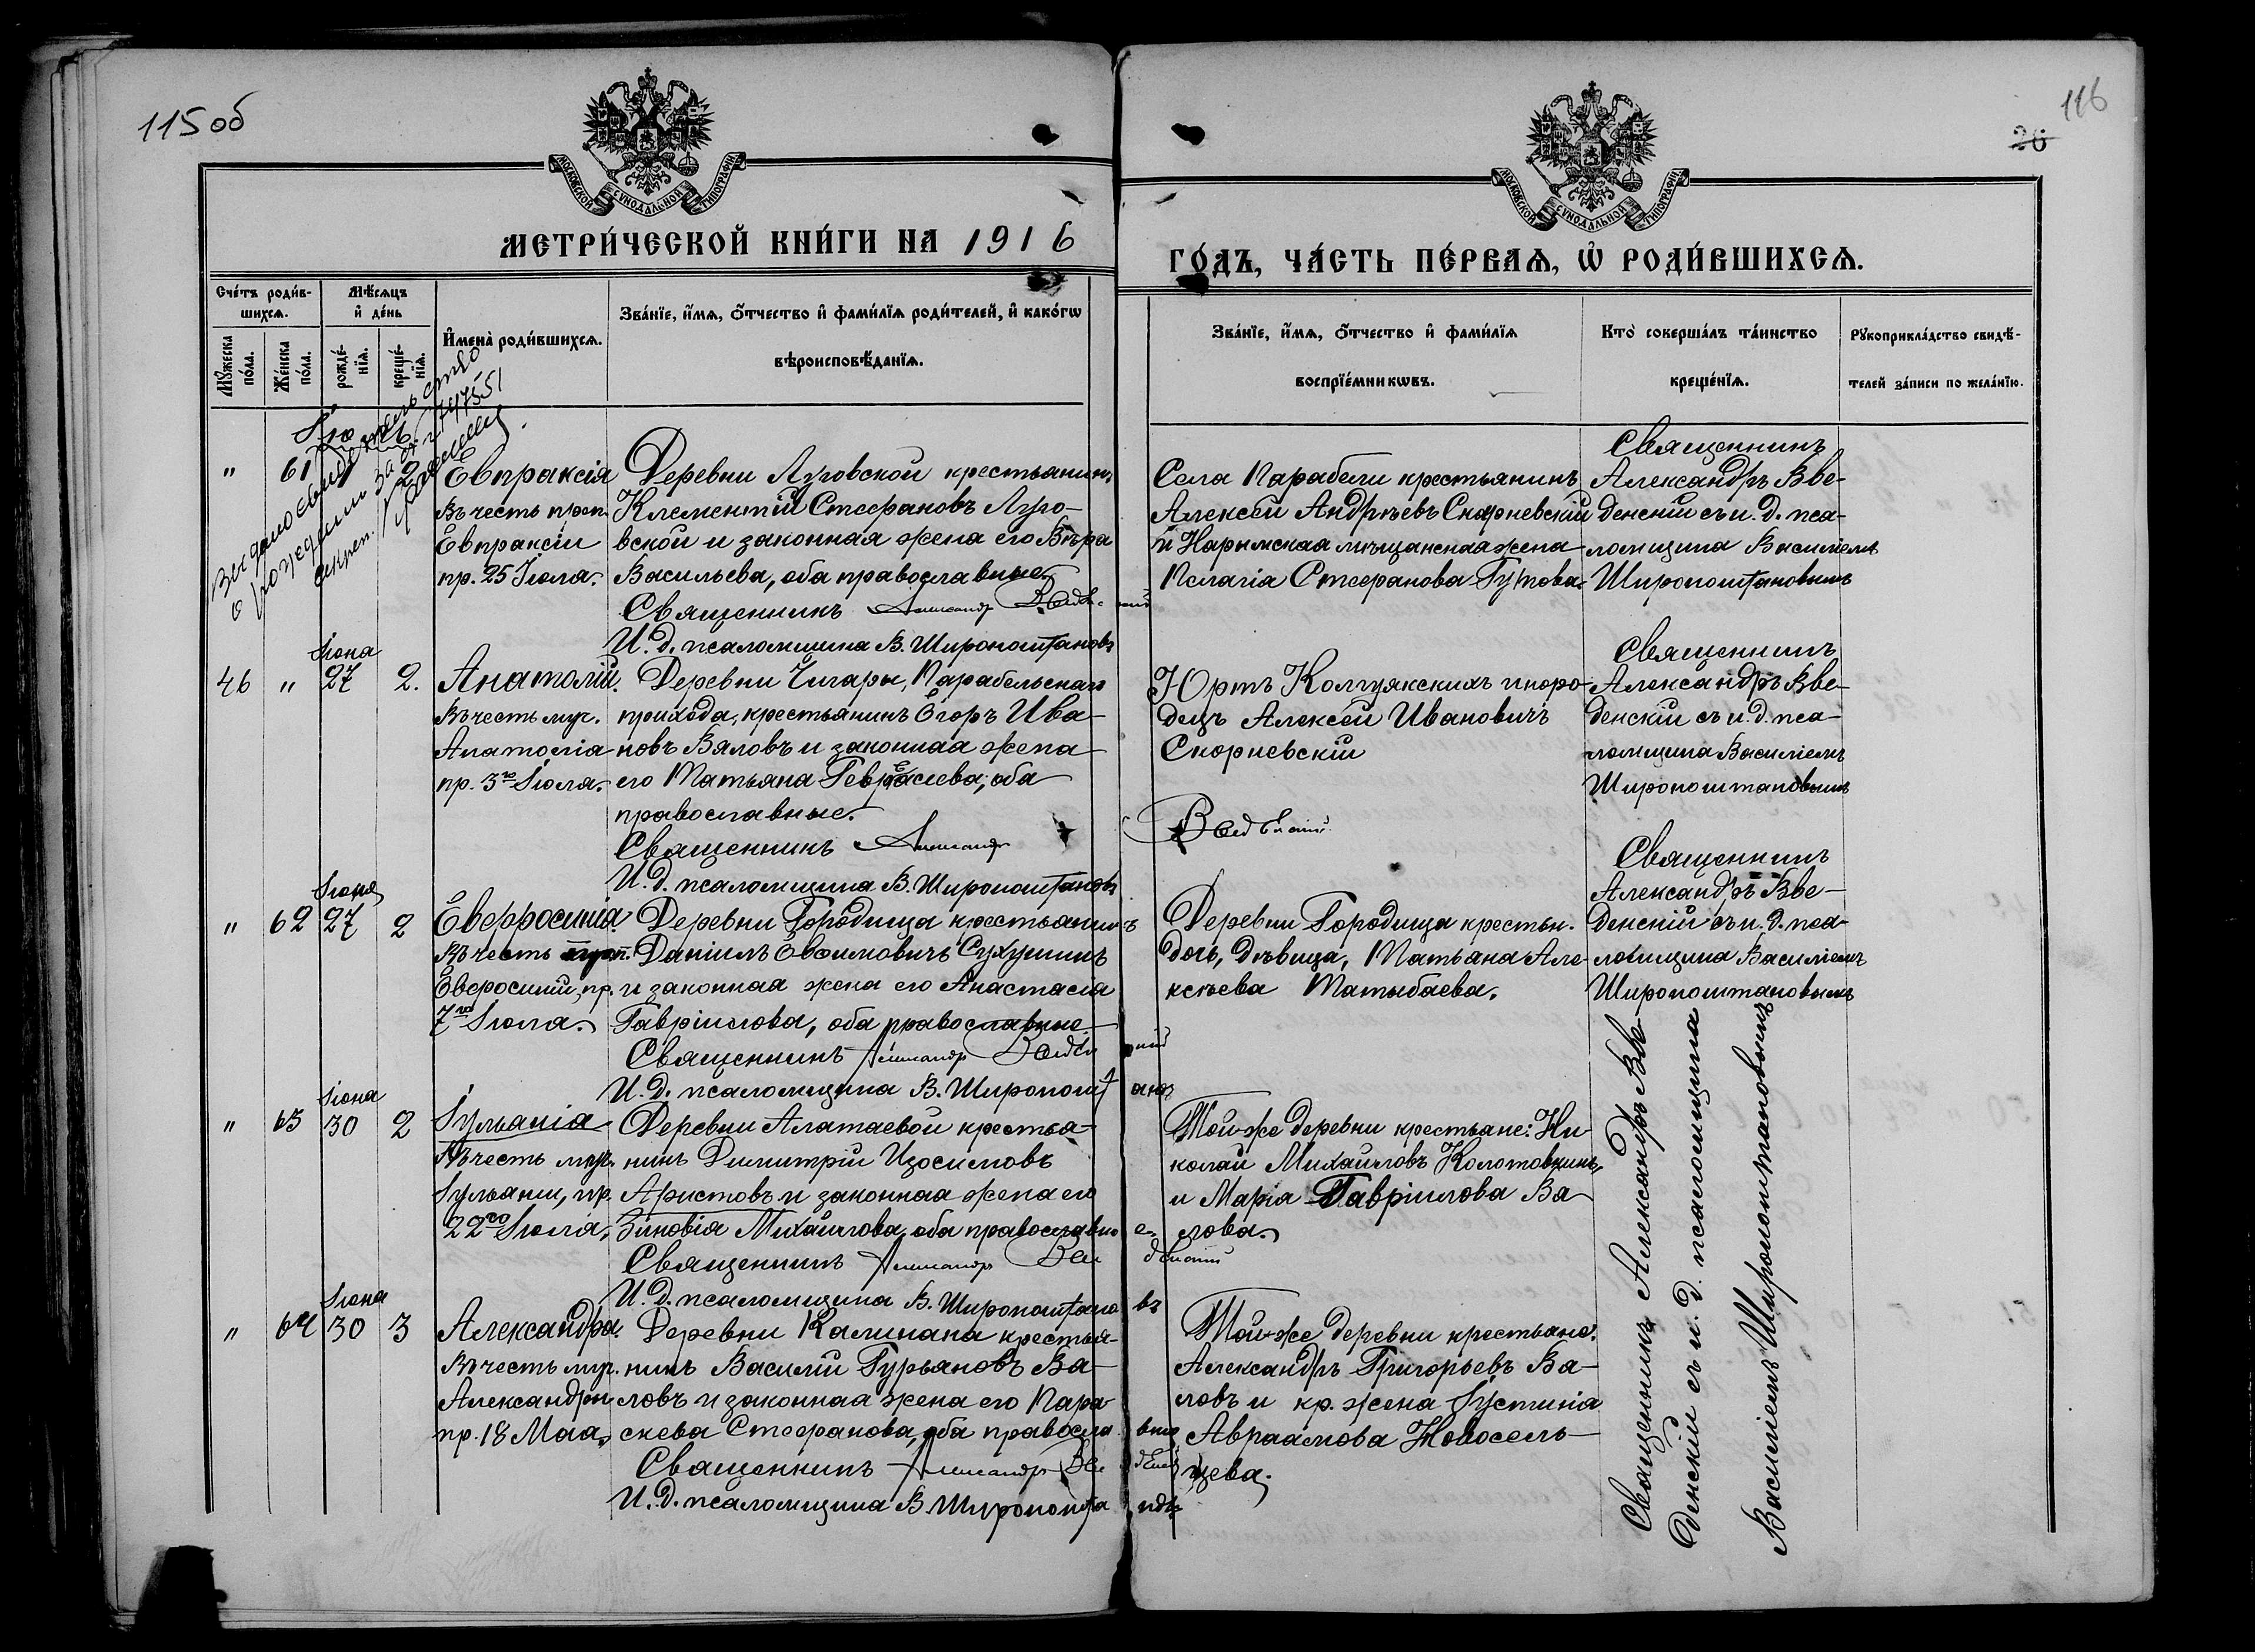 115 об
116
20
МОСКОВСКОЙ СѴНОДАЛЬНОЙ ТИПОГРАФІИ
МОСКОВСКОЙ СѴНОДАЛЬНОЙ ТИПОГРАФІИ
МЕТРИ́ЧЕСКОЙ КНИ́ГИ НА 1916
ГО́ДЪ, ЧА́СТЬ ПЕ́РВАѦ, Ѡ РОДИ́ВШИХСѦ.
Сче́тъ роди́в-
шихсѧ.
Мꙋ́жеска по́ла.
Же́нска по́ла.
Мѣ́сѧцъ
и́ де́нь
рожде́-
нїѧ.
креще́-
нїѧ.
И҆мена̀ роди́вшихсѧ.
Зва́нїе, и҆́мѧ, ѻ҆́тчество и҆ фами́лїѧ роди́телей, и҆ како́гѡ
вѣроисповѣ́данїѧ.
Зва́нїе, и҆́мѧ, ѻ҆́тчество и҆ фами́лїѧ
воспрїе́мникѡвъ.
Кто̀ соверша́лъ та́инство
креще́нїѧ.
Рꙋкоприкла́дство свидѣ́-
телей за́писи по жела́нїю.
Выдано свидетельство
о рождении за № 174751
" 61 1 2
Евпраксія
Въ честь преп.
Евпраксіи
пр. 25 Іюля.
Деревни Луговской крестьянинъ
Клементій Стефановъ Луго-
вской и законная жена его Вѣра
Васильева, оба православные.
Священникъ Александр Введенскій
И. д. псаломщика В. Широкоштановъ
Села Парабели крестьянинъ
Алексѣй Андрѣевъ Скорневскій
и Нарымская мѣщанская жена
Пелагія Стефанова Гутова.
Священникъ
Александръ Вве-
денскій съ и. д. пса-
ломщика Василіемъ
Широкоштановымъ
46 " Іюня 27 2.
Анатолій.
Въ честь муч.
Анатолія
пр. 3го Іюля.
Деревни Чигары, Парабельскаго
прихода, крестьянинъ Егоръ Ива-
новъ Вяловъ и законная жена
его Татьяна Герасиева, оба
православные.
Священникъ Александр Введенскій
И. д. псаломщика В. Широкоштановъ
Юртъ Колгуякскихъ иноро-
децъ Алексѣй Ивановичъ
Скорневскій
Священникъ
Александръ Вве-
денскій съ и. д. пса-
ломщика Василіемъ
Широкоштановымъ
" 62 Іюня 27 2
Евфросинія.
Въ честь преп.
Евфросиніи, пр.
7го Іюля.
Деревни Городища крестьянинъ
Даніилъ Евфимовичъ Сухушинъ
и законная жена его Анастасія
Гавріилова, оба православные.
Священникъ Александр Введенскій
И. д. псаломщика В. Широкоштановъ
Деревни Городища крестьян.
дочь, дѣвица, Татьяна Але-
ксѣева Татыбаева.
Священникъ
Александръ Вве-
денскій съ и. д. пса-
ломщика Василіемъ
Широкоштановымъ
" 63 Іюня 30 2
Іуліанія
Въ честь муч.
Іуліаніи, пр.
22го Іюля,
Деревни Алатаевой крестья-
нинъ Димитрій Изосимовъ
Аристовъ и законная жена его
Зиновія Михайлова, оба православные.
Священникъ Александр Введенскій
И. д. псаломщика В. Широкоштановъ
Той-же деревни крестьяне: Ни-
колай Михайловъ Колотовкинъ
и Марія Гавріилова Вя-
лова.
" 64 Іюня 30 3
Александра.
Въ честь муч.
Александры
пр. 18 Мая,
Деревни Калинака крестья-
нинъ Василій Гурьяновъ Вя-
ловъ и законная жена его Пара-
скева Стефанова, оба православные
Священникъ Александр Введенскій
И. д. псаломщика В. Широкоштановъ
Той-же деревни крестьяне:
Александръ Григорьевъ Вя-
ловъ и кр. жена Іустинія
Авраамова Новосель-
цева.
Священникъ Александръ Вве-
денскій съ и. д. псаломщика
Василіемъ Широкоштановымъ